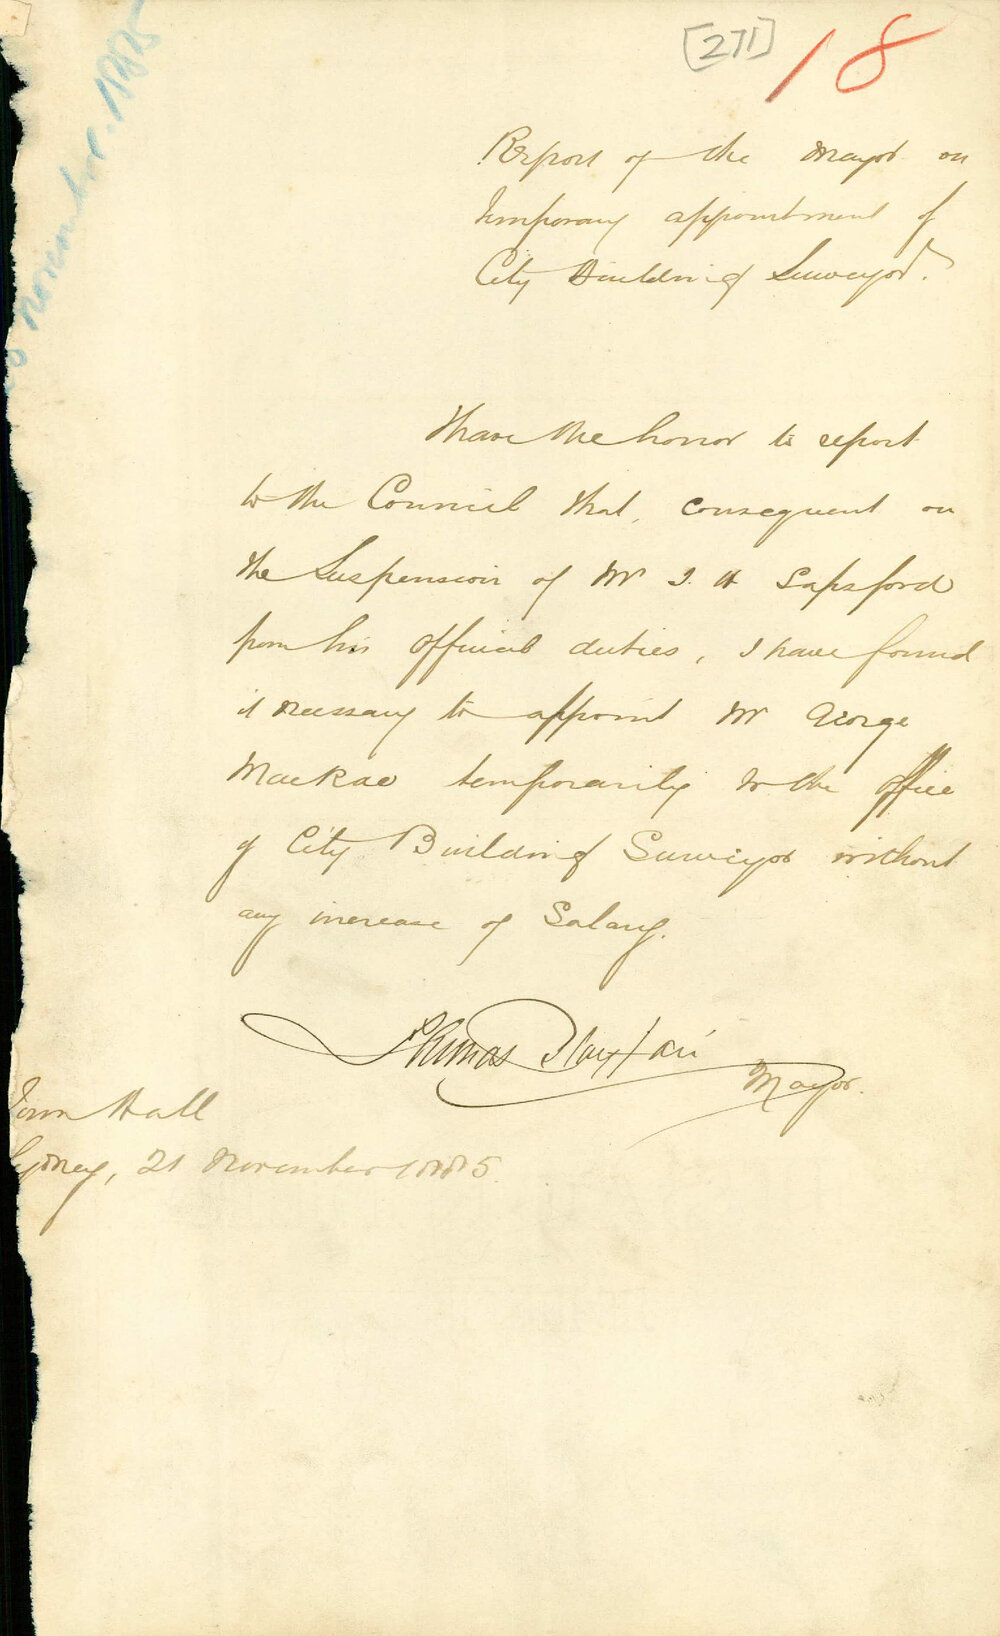 [271] 18
November 1885
Report of the Mayor on
temporary appointment of
City Building Surveyor.
I have the honor to report
to the Council that, consequent on
the Suspension of Mr T. H Sapsford
from his official duties, I have found
it necessary to appoint Mr George
MacRae temporarily to the office
of City Building Surveyor without
any increase of Salary.
Thomas Playfair
Mayor.
Town Hall
Sydney, 21 November 1885.